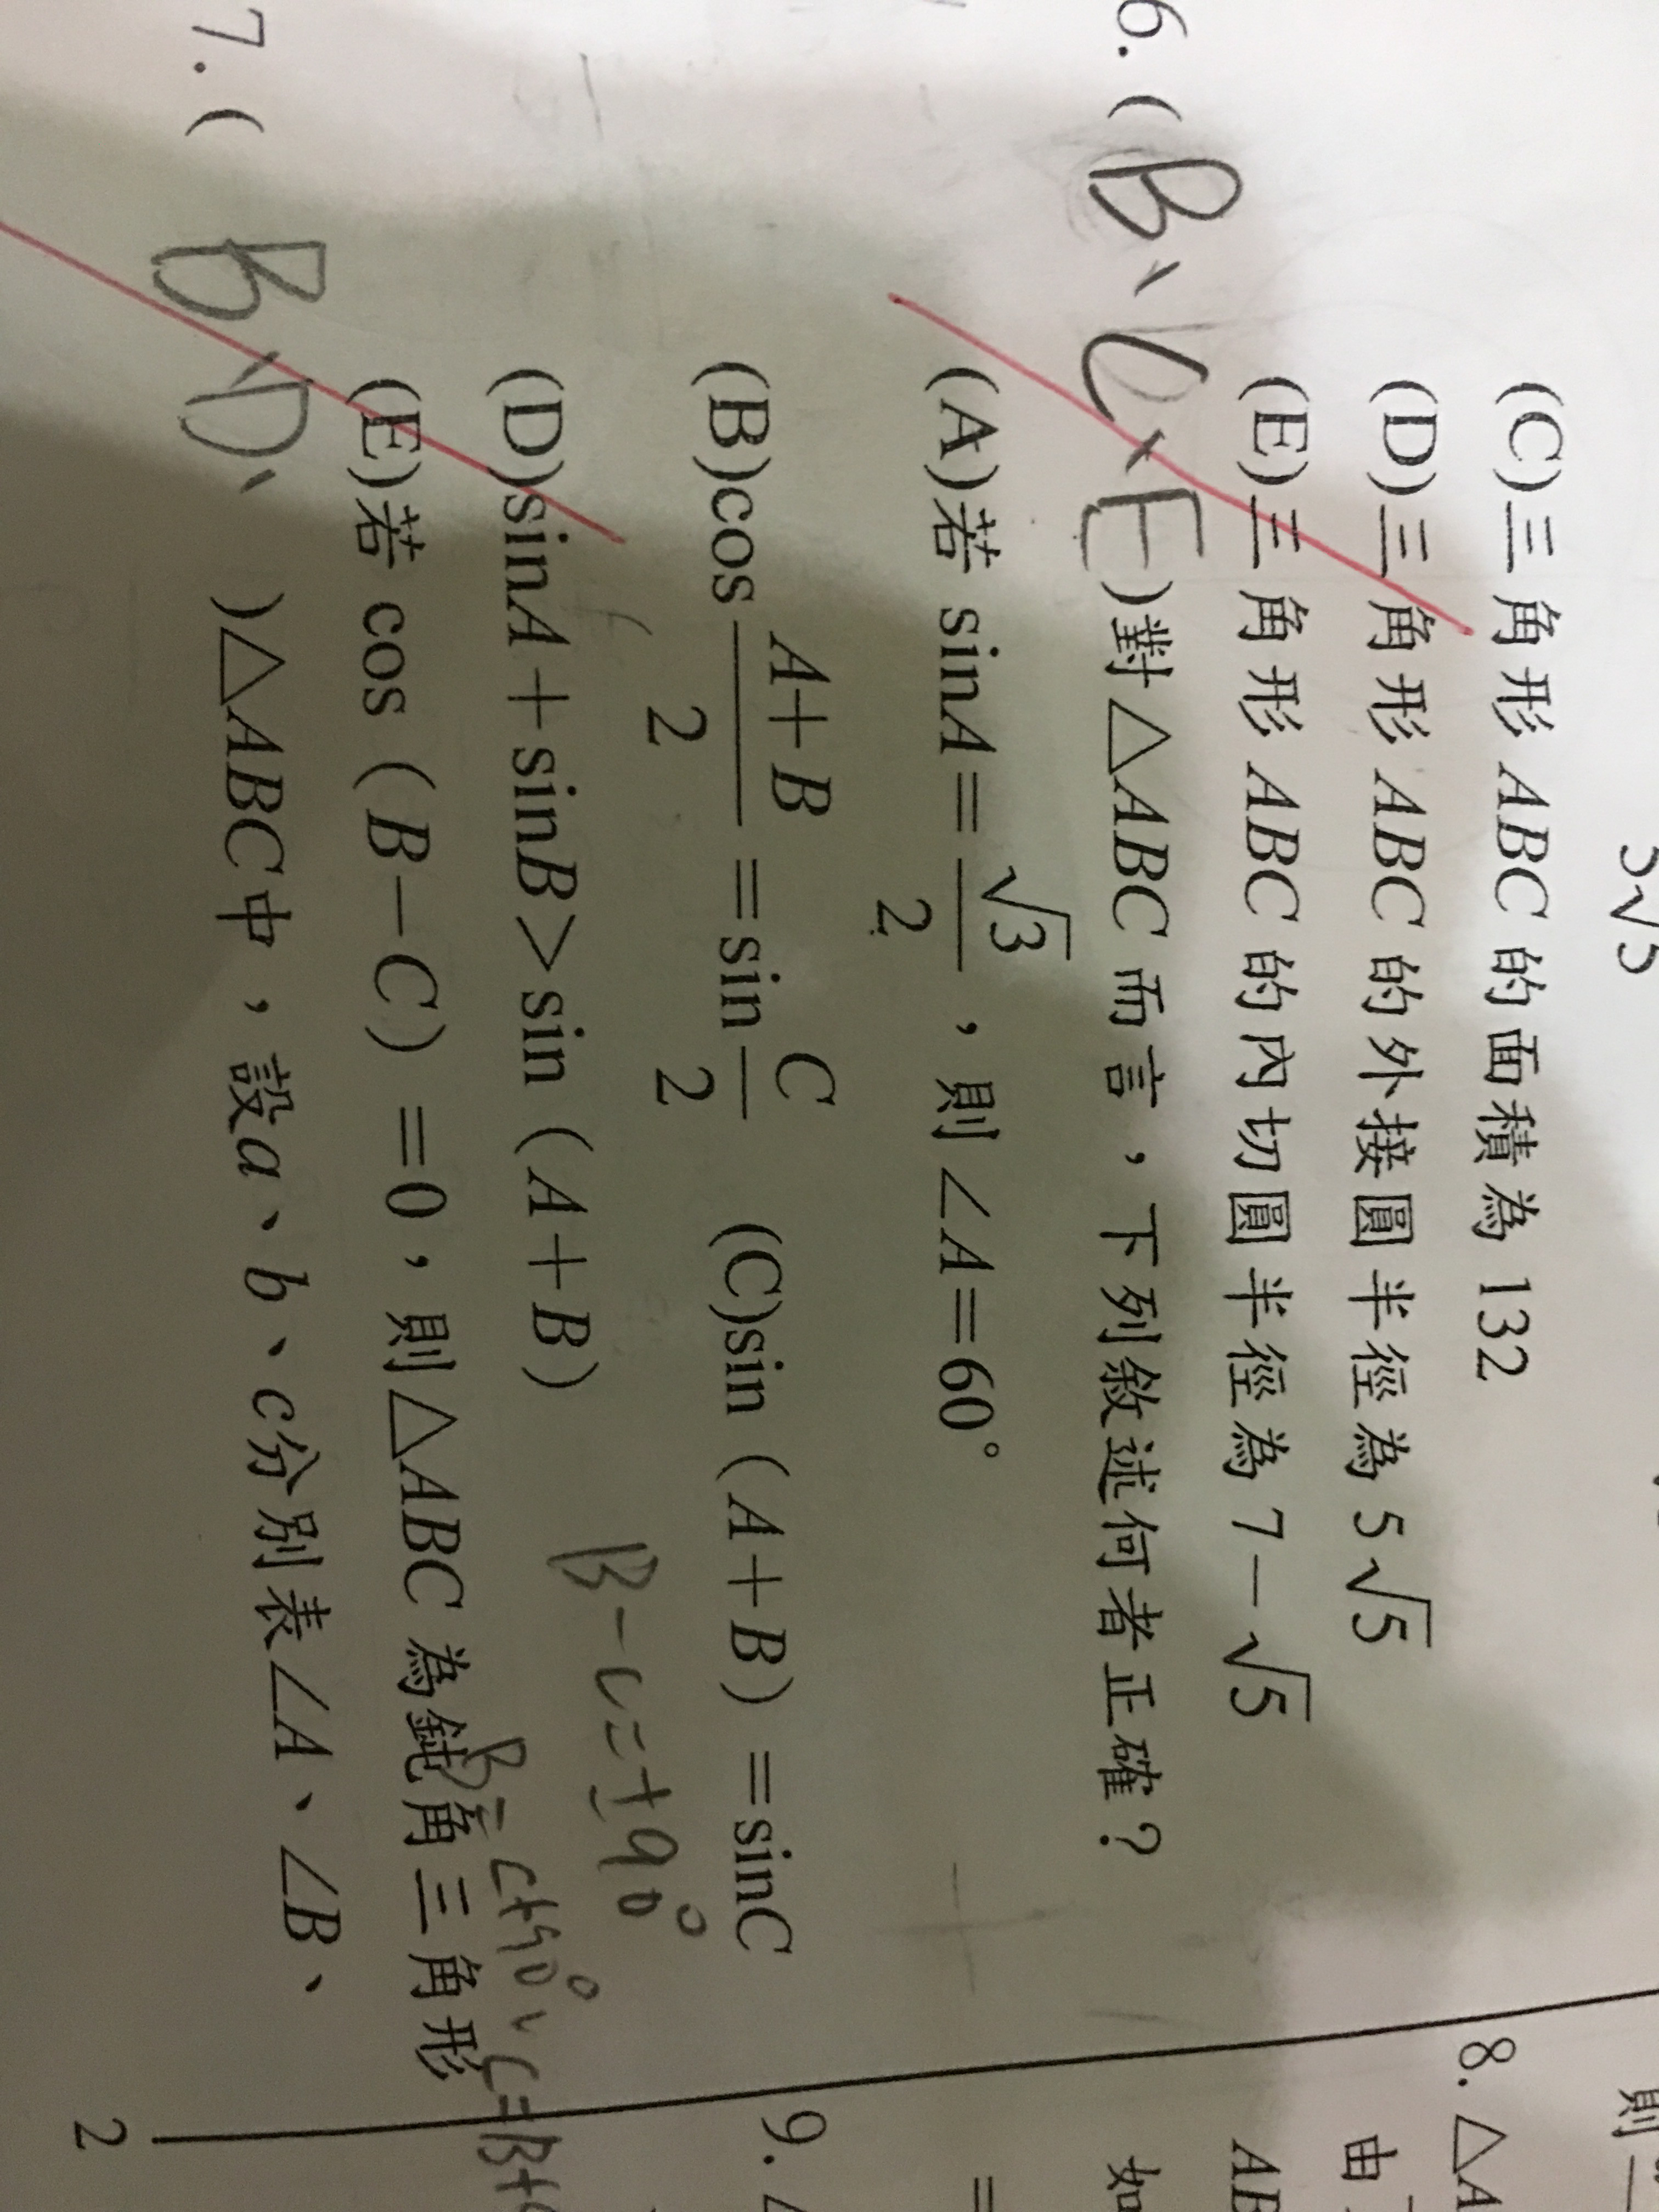 5√5
(C)三角形 ABC 的面積為 132
(D)三角形 ABC 的外接圓半徑為 5√5
(E)三角形 ABC 的內切圓半徑為 7－√5
6. ( B、C、E )對△ABC 而言，下列敘述何者正確？
(A)若 sinA＝√3/2，則∠A＝60°
(B)cos (A＋B)/2＝sin C/2 (C)sin（A＋B）＝sinC
(D)sinA＋sinB＞sin（A＋B）
B－C＝±90°
(E)若 cos（B－C）＝0，則△ABC 為鈍角三角形
B＝C+90°、C＝B+9
7. ( B、D、 )△ABC中，設a、b、c分別表∠A、∠B、
2
則
8. △A
由
AB
如
＝
9.